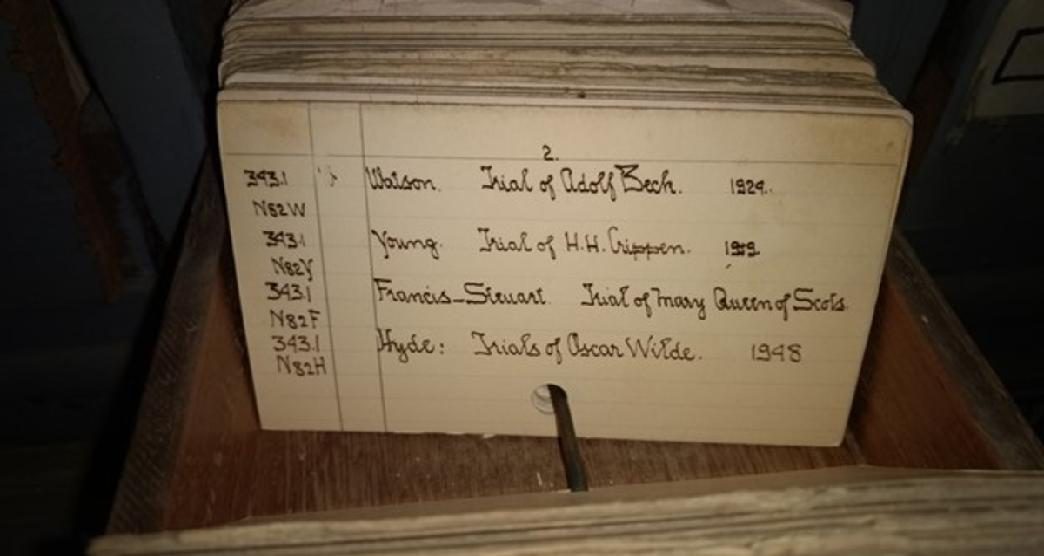 2.
343.1 Watson. Trial of Adolf Beck. 1924.
N82W
343.1 Young. Trial of H.H. Crippen.
N82Y
343.1 Francis-Steuart. Trial of Mary Queen of Scots.
N82F
343.1 Hyde: Trials of Oscar Wilde. 1948
N82H